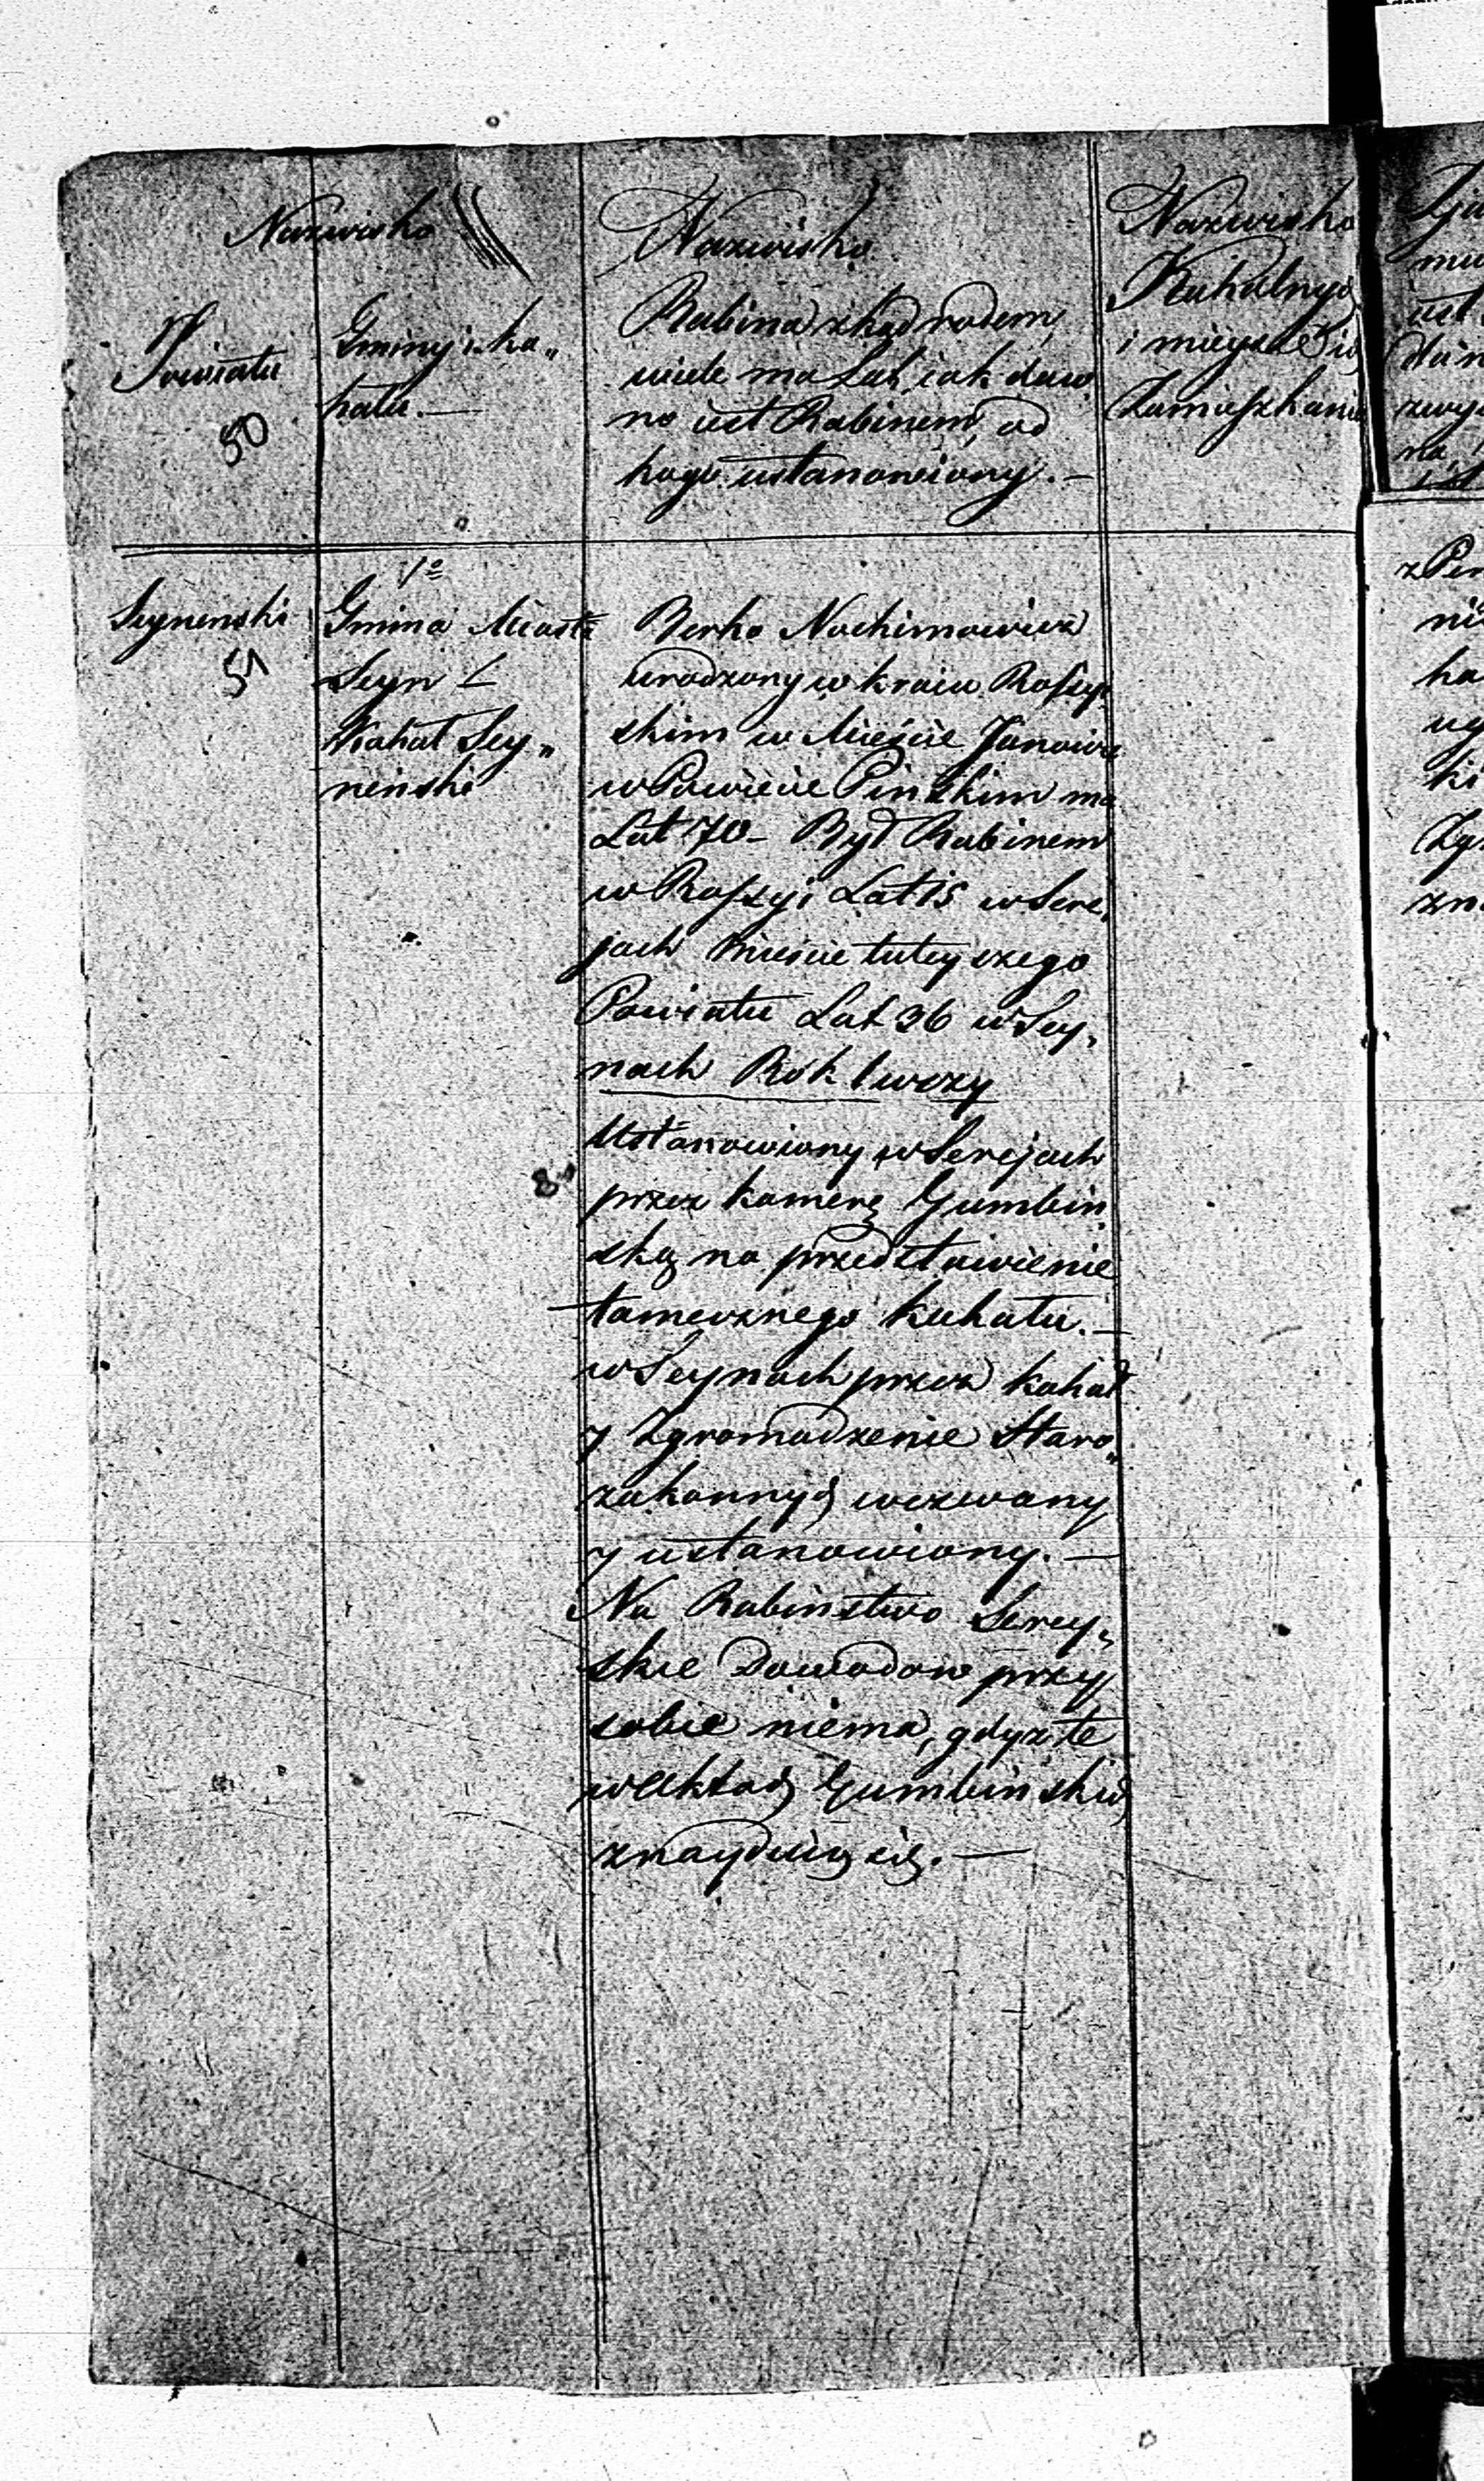 Nazwisko
Powiatu
50
Gminy i Ka„
hału.—
Nazwisko
Rabina zkąd rodem,
wiele ma Lat, iak daw
no iest Rabinem, od
kogo ustanowiony.—
Nazwisko
Kahalnych
i mieysce ich
Zamieszkania
Seynenski
51
1º
Gmina Miasta
Seyn
Kahał Sey„
nenski
Berko Nochimowicz
urodzony w kraiu Rossyi
skim w Mieście Janowie
w Powiecie Pinskim ma
Lat 70 – Był Rabinem
w Rossyi Lat 15 w Sere,
jach Mieście tuteyszego
Powiatu Lat 36 w Sey,
nach Rok 1wszy
Ustanowiony w Serejach
przez kamerę Gumbin
ską na przedstawienie
tamecznego kahału.—
w Seynach przez kahał
y Zgromadzenie Staro„
zakonnych wezwany
y ustanowiony.—
Na Rabinstwo Serey,
skie Dowodow przy
sobie niema, gdyż te
w Aktach Gumbinskich
znayduią się.—
z
ni
ha
ug
ki
zn